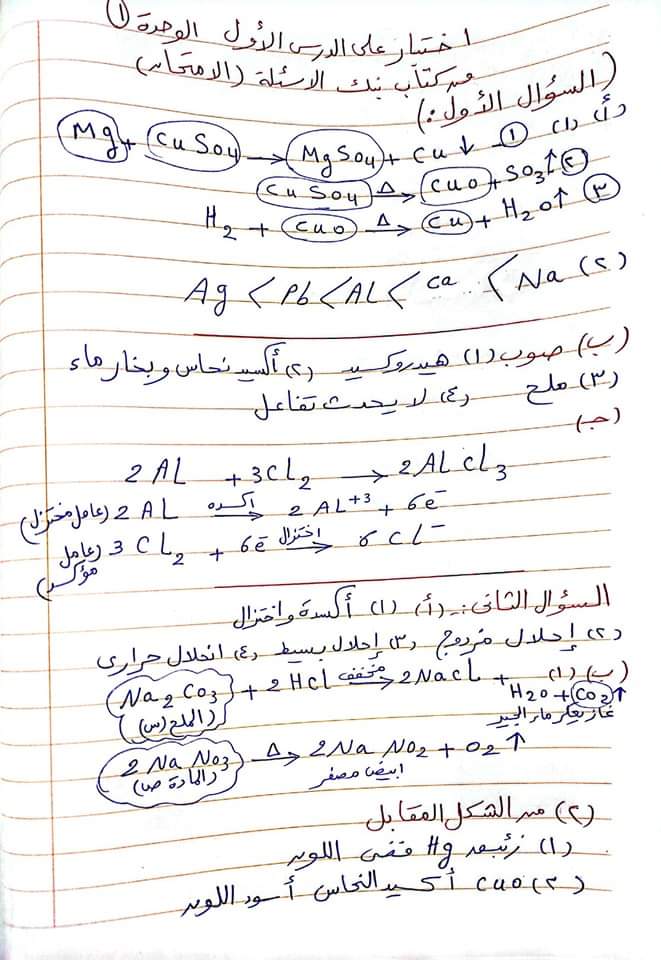 اختبار على الدرس الأول الوحدة ①
من كتاب بنك الاسئلة (الامتحان)
(السؤال الأول:)
(أ) (١) Mg + CuSO4 → MgSO4 + Cu↓ ①
CuSO4 △→ CuO + SO3↑ ②
H2 + CuO △→ Cu + H2O↑ ③
(٢) Ag < Pb < AL < Ca < Na
(ب) صوب (١) هيدروكسيد (٢) أكسيد نحاس وبخار ماء
(٣) ملح (٤) لا يحدث تفاعل
(جـ)
2 AL + 3CL2 → 2AL CL3
(عامل مختزل) 2 AL أكسدة→ 2 AL+3 + 6e-
(عامل مؤكسد) 3 CL2 + 6e- اختزال→ 6 CL-
السؤال الثانى:- (أ) (١) أكسدة واختزال
(٢) إحلال مزدوج (٣) إحلال بسيط (٤) انحلال حرارى
(ب) (١) Na2CO3 + 2HCl مخفف→ 2NaCL + H2O + CO2↑
(الملح (س)) غاز يعكر ماء الجير
2 Na NO3 △→ 2Na NO2 + O2↑
(المادة ص) ابيض مصفر
(٢) من الشكل المقابل
(١) زئبق Hg فضى اللون
(٢) CuO أكسيد النحاس أسود اللون